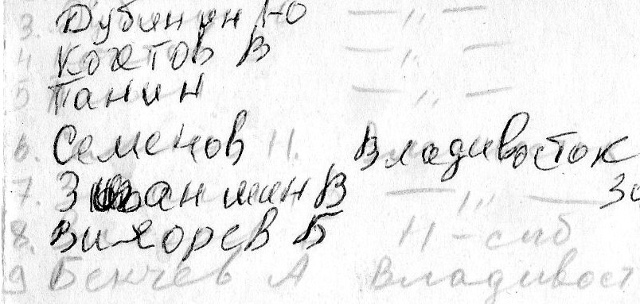 3. Дубянин Ю — „ —
4 Коктов В — „ —
5 Панин — „ —
6. Семенов Н. Владивосток
7. В — „ —
8. Вихорев Б Н-сиб
9 Бекчев А Владивост